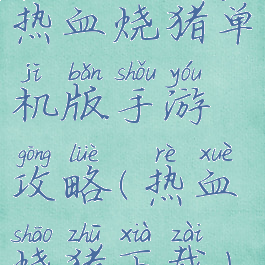 热血烧猪单
jī bǎn shǒu yóu
机版手游
gōng lüè rè xuè
攻略(热血
shāo zhū xià zài
烧猪下载)